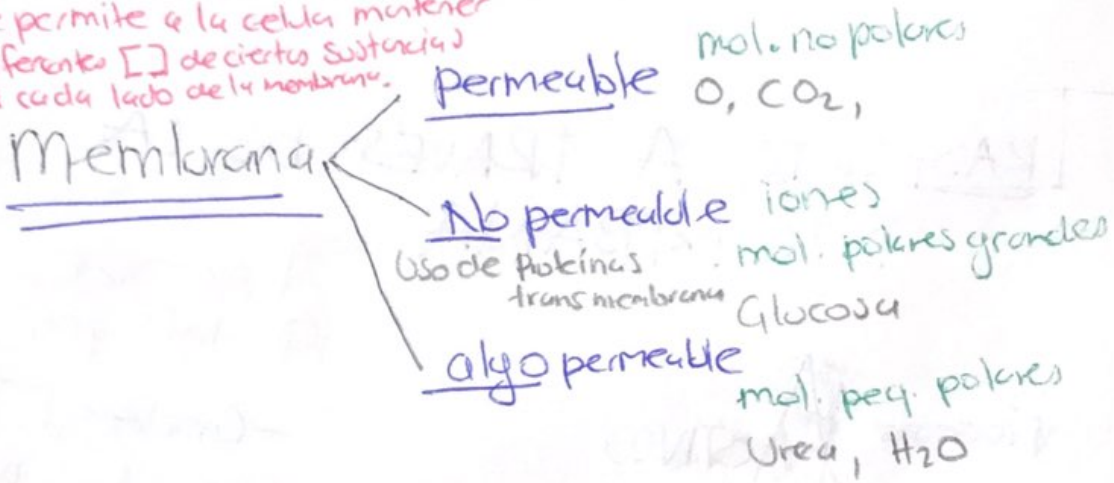 permite a la celula mantener
ferentes [] de ciertas sustancias
cada lado de la membrana.
Membrana
permeable
mol. no polares
O, CO₂,
No permeable
Uso de Proteínas
transmembrana
iones
mol. polares grandes
Glucosa
algo permeable
mol. peq. polares
Urea, H₂O